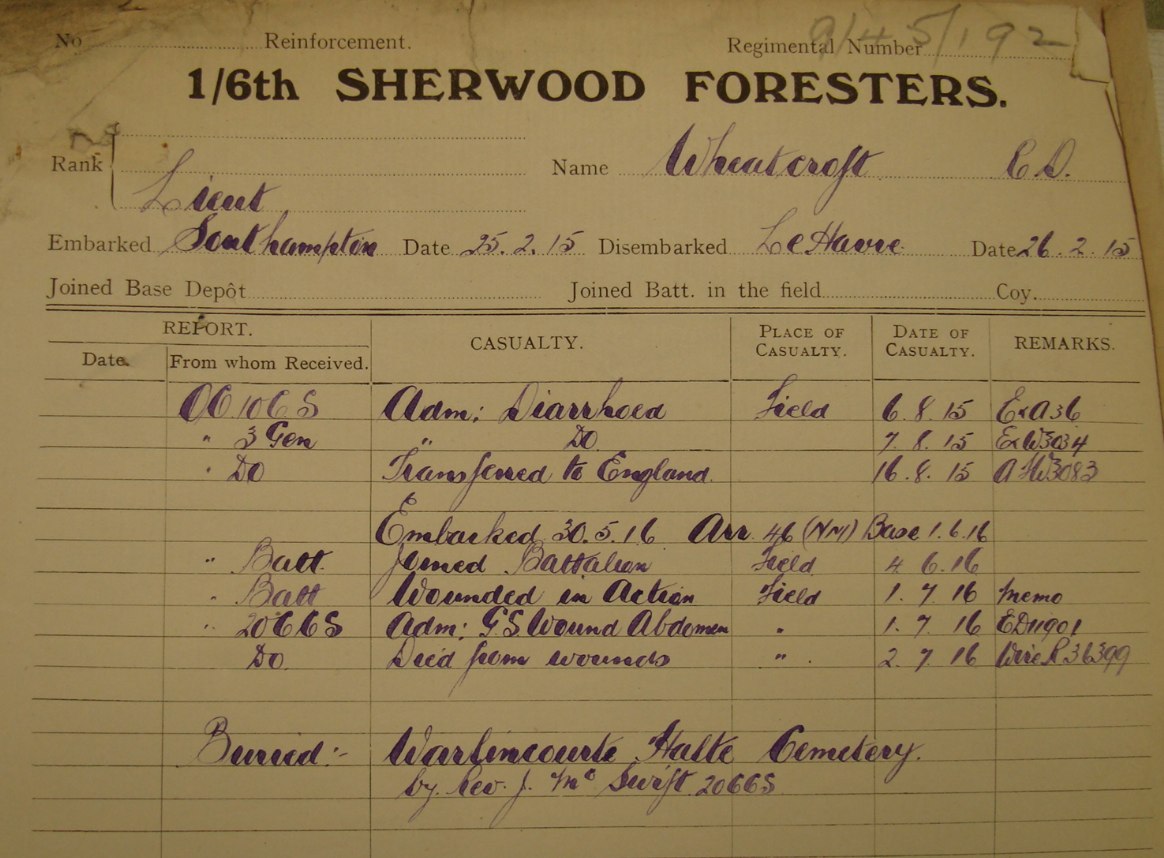 No Reinforcement. Regimental Number 9/45/192
1/6th SHERWOOD FORESTERS.
Rank Lieut Name Wheatcroft
Embarked Southampton Date 25.2.15 Disembarked Le Havre Date 26.2.15
Joined Base Depôt Joined Batt. in the field Coy.
REPORT. CASUALTY. PLACE OF CASUALTY. DATE OF CASUALTY. REMARKS.
Date. From whom Received.
Adm: Diarrhoea Field 6.8.15 ExA36
" 3 Gen " Do 7.8.15 ExW3034
" Do Transferred to England. 16.8.15 AHW3083
Embarked 30.5.16 Arr 46 (NM) Base 1.6.16
" Batt. Joined Battalion Field 4 6.16
" Batt Wounded in Action Field 1.7.16 Memo
" 20CCS Adm: GS Wound Abdomen " 1.7.16
Do Died from wounds " 2.7.16 Wire
Buried:- Warlincourte Halte Cemetery.
by Rev. J. Mc Swift 20CCS